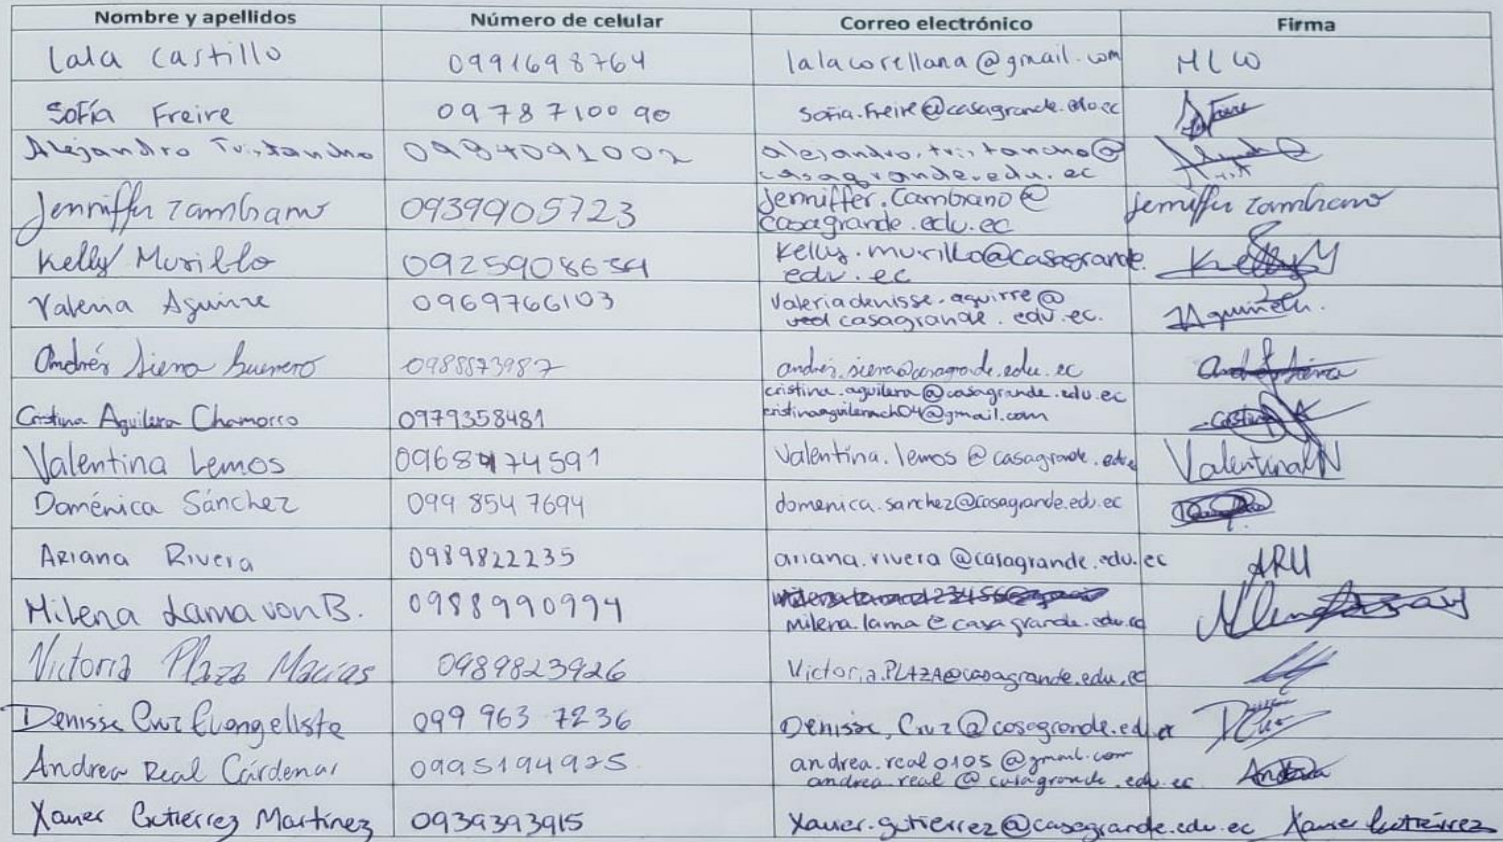 Nombre y apellidos Número de celular Correo electrónico Firma
Lala Castillo 0991698764 lalacorellana@gmail.com MLCO
Sofía Freire 0978710090 sofia.freire@casagrande.edu.ec
Alejandro Tristancho 0984091002 alejandro.tristancho@
casagrande.edu.ec
Jenniffer Zambrano 0939905723 Jenniffer.Zambrano@ Jenniffer Zambrano
casagrande.edu.ec
Kelly Murillo kelly.murillo@casagrande. KellyM
edu.ec
Valeria Aguirre 0969766103 Valeriadenisse.aguirre@
casagrande.edu.ec.
Andrés Siena Guerrero 0988873987 andrés.siena@casagrande.edu.ec Andrés Siena
cristina.aguilera@casagrande.edu.ec
Cristina Aguilera Chamorro 0979358481 cristinaaguilerach04@gmail.com
Valentina Lemos valentina.lemos@casagrande.edu.ec
Doménica Sánchez 099 854 7694 domenica.sanchez@casagrande.edu.ec
Ariana Rivera 0989822235 ariana.rivera@casagrande.edu.ec ARU
Milena Lama von B. 0988990994
milena.lama@casagrande.edu.ec
Victoria Plaza Macías 0989823926 Victoria.PLAZA@casagrande.edu.ec
Denisse Cruz Evangelista 099 963 7236 Denisse.Cruz@casagrande.edu.ec
Andrea Real Cárdenas 0995194925 andrea.real0105@gmail.com Andrea
andrea.real@casagrande.edu.ec
Xavier Gutiérrez Martínez 0939393915 Xavier.gutierrez@casagrande.edu.ec Xavier Gutiérrez